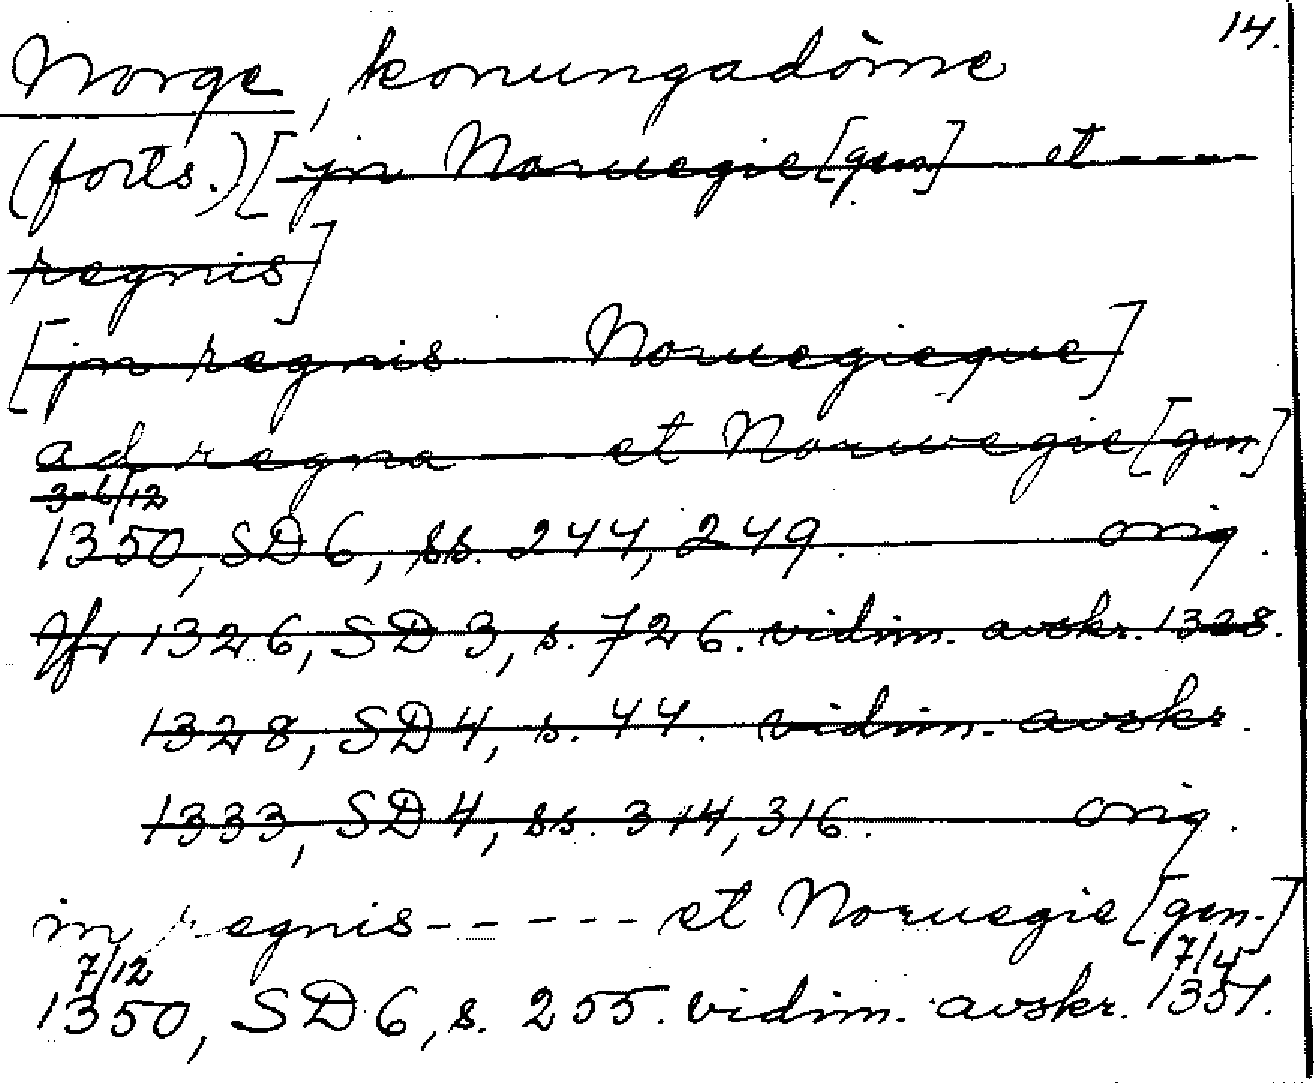 14.
Norge, konungadöme
(forts.) [jn Noruegie [gen] et ----
regnis]
[jn regnis — Noruegieque]
ad regna — et Norwegie [gen]
3-6/12
1350, SD 6, ss. 244, 249. orig.
Jfr 1326, SD 3, s. 726. vidim. avskr. 1328.
1328, SD 4, s. 44. vidim. avskr.
1333, SD 4, ss. 314, 316. orig.
in regnis ----- et Noruegie [gen.]
7/12 7/4
1350, SD 6, s. 255. vidim. avskr. 1351.